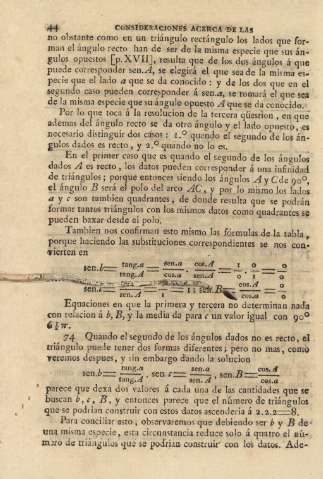 44 CONSIDERACIONES ACERCA DE LAS
no obstante como en un triángulo rectángulo los lados que for-
man el ángulo recto han de ser de la misma especie que sus án-
gulos opuestos [p.XVII], resulta que de los dos ángulos á que
puede corresponder sen.A, se elegirá el que sea de la misma es-
pecie que el lado a que se da conocido : y de los dos que en el
segundo caso pueden corresponder á sen.a, se tomará el que sea
de la misma especie que su ángulo opuesto A que se da conocido.
Por lo que toca á la resolucion de la tercera qüestion, en que
ademas del ángulo recto se da otro ángulo y el lado opuesto, es
necesario distinguir dos casos: 1.º quando el segundo de los án-
gulos dados es recto, y 2.º quando no lo es.
En el primer caso que es quando el segundo de los ángulos
dados A es recto, los datos pueden corresponder á una infinidad
de triángulos; porque entonces siendo los ángulos A y C de 90º,
el ángulo B será el polo del arco AC, y por lo mismo los lados
a y c son tambien quadrantes, de donde resulta que se podrán
formar tantos triángulos con los mismos datos como quadrantes se
pueden baxar desde el polo.
Tambien nos confirman esto mismo las fórmulas de la tabla,
porque haciendo las substituciones correspondientes se nos con-
vierten en
sen.b = tang.a / tang.A = sen.a / cos.a · cos.A / sen.A = 1 / 0 · 0 / 1 = 0 / 0
sen.c = / sen.A = 1 : sen.B = cos.A / cos.a = 0 / 0
Equaciones en que la primera y tercera no determinan nada
con relacion á b, B, y la media da para c un valor igual con 90º
ó ½ π.
74 Quando el segundo de los ángulos dados no es recto, el
triángulo puede tener dos formas diferentes; pero no mas, como
veremos despues, y sin embargo dando la solucion
sen.b = tang.a / tang.A, sen.c = sen.a / sen.A, sen.B = cos.A / cos.a
parece que dexa dos valores á cada una de las cantidades que se
buscan b, c, B, y entonces parece que el número de triángulos
que se podrian construir con estos datos ascenderia á 2.2.2=8.
Para conciliar esto, observaremos que debiendo ser b y B de
una misma especie, esta circunstancia reduce solo á quatro el nú-
mero de triángulos que se podrian construir con los datos. Ade-